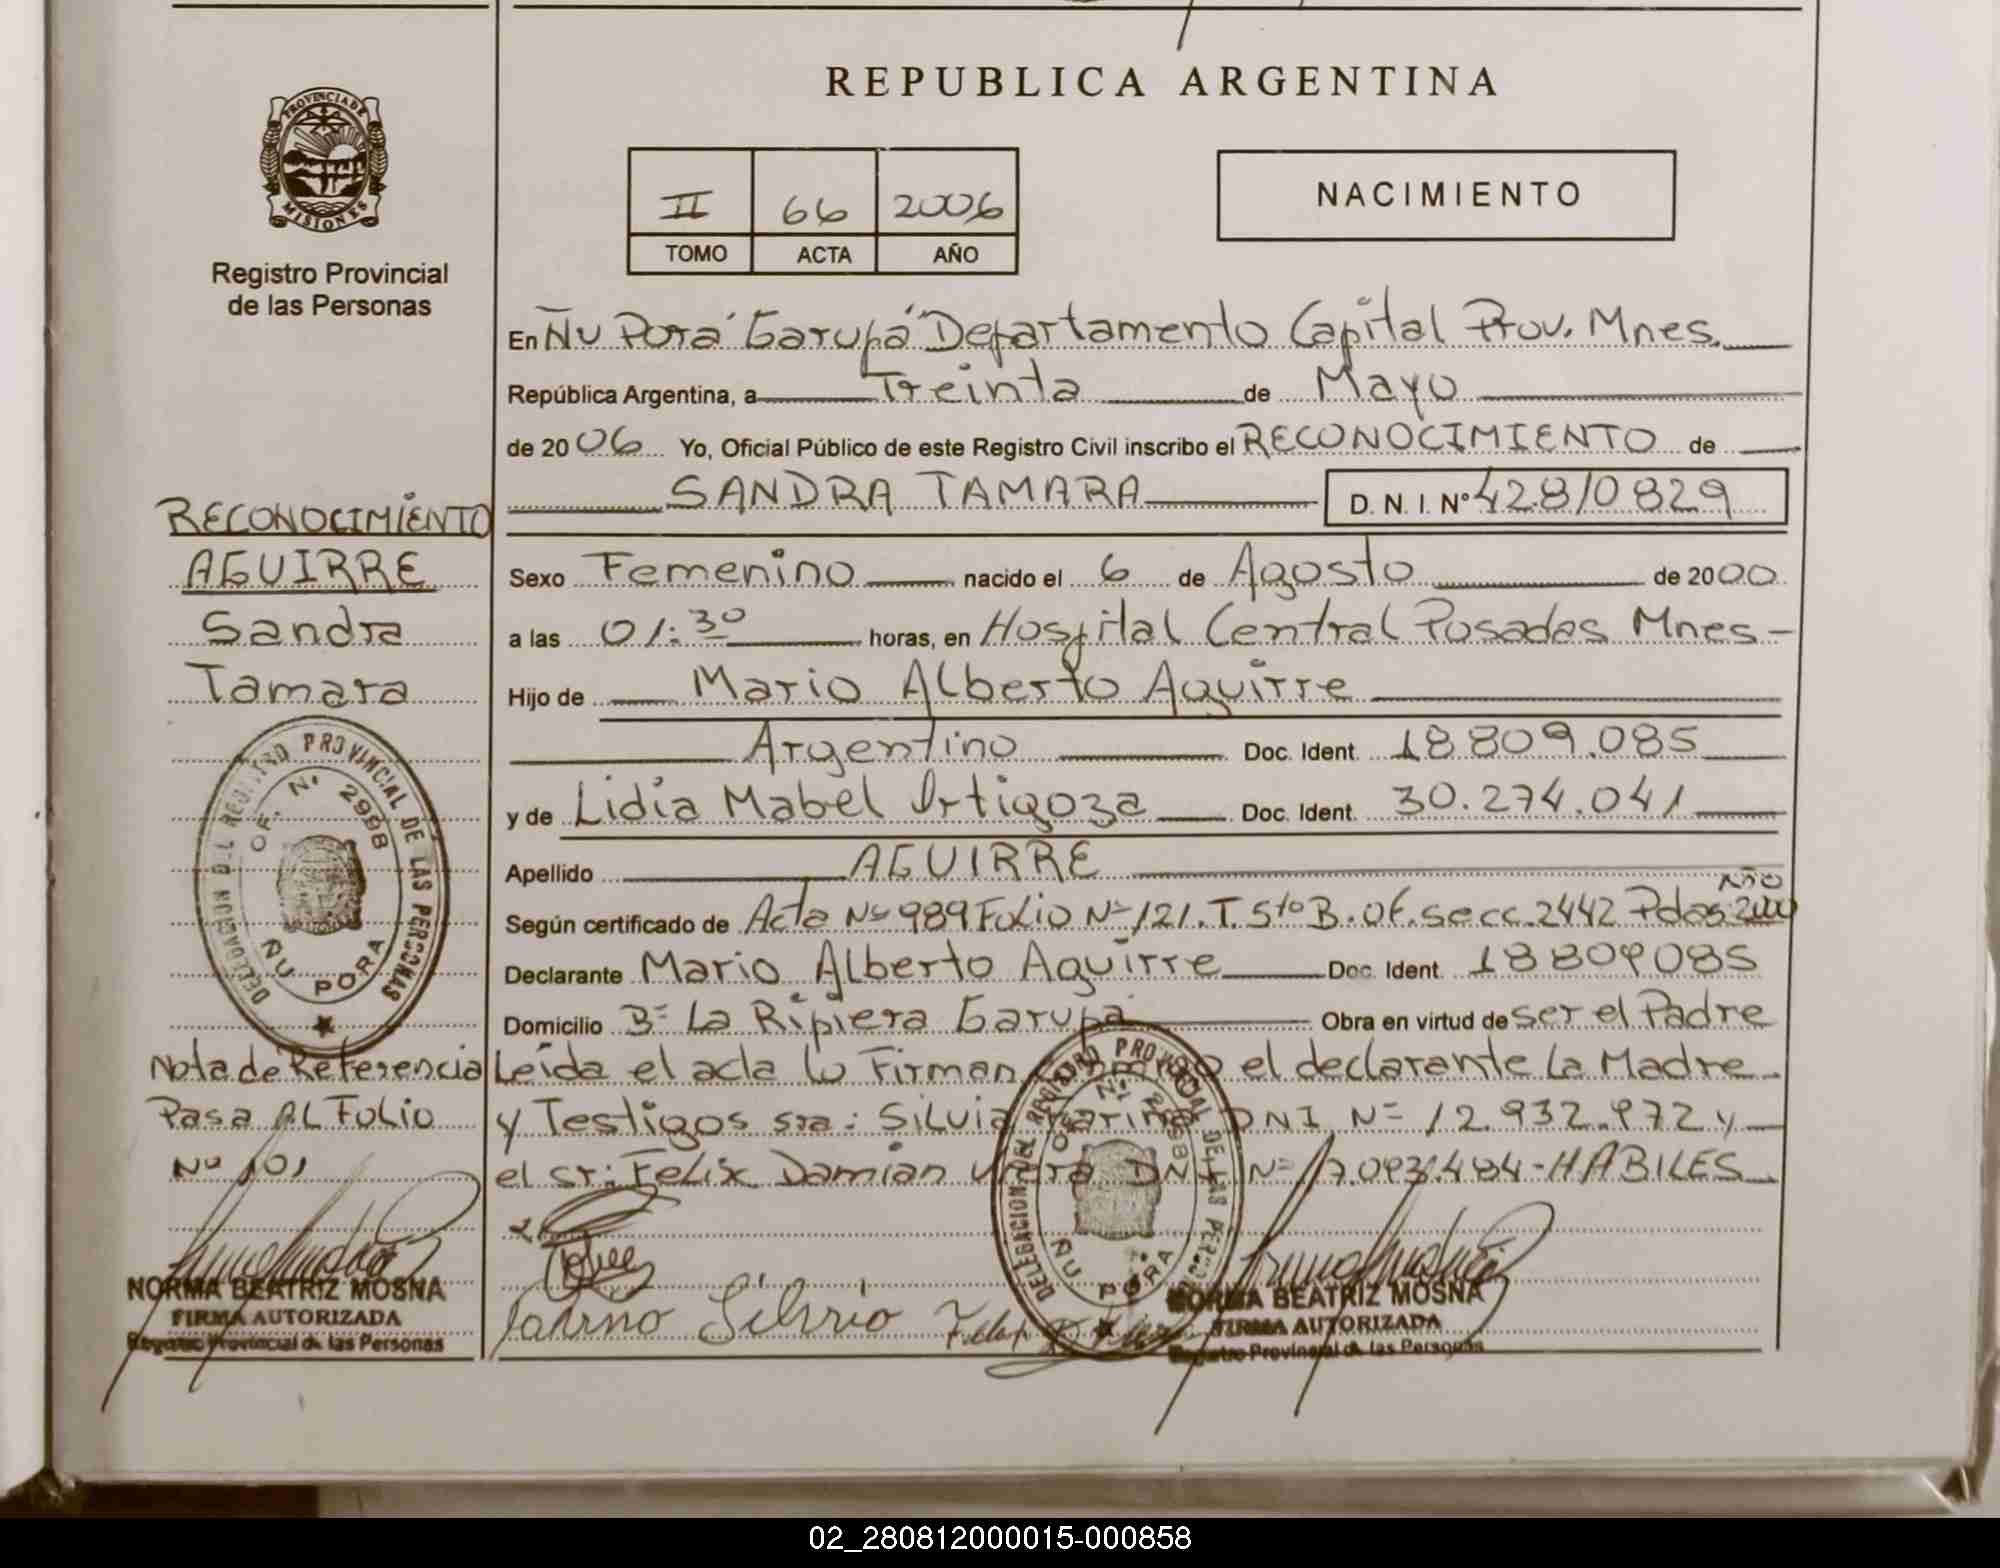 REPUBLICA ARGENTINA
PROVINCIA DE
MISIONES
Registro Provincial
de las Personas
II 66 2006
TOMO ACTA AÑO
NACIMIENTO
En Ñu Porá Garupá Departamento Capital Prov. Mnes.
República Argentina, a Treinta de Mayo
de 2006 Yo, Oficial Público de este Registro Civil inscribo el RECONOCIMIENTO de
SANDRA TAMARA D. N. I. Nº 42810829
RECONOCIMIENTO
AGUIRRE
Sandra
Tamara
Sexo Femenino nacido el 6 de Agosto de 2000
a las 01:30 horas, en Hospital Central Posadas Mnes-
Hijo de Mario Alberto Aguirre
Argentino Doc. Ident. 18.809.085
y de Lidia Mabel Ortigoza Doc. Ident. 30.274.041
Apellido AGUIRRE
Según certificado de Acta Nº 989 Folio Nº 121. T. 5to B. of. secc. 2442 Pdas año 2000
Declarante Mario Alberto Aguirre Doc. Ident. 18809085
Domicilio Bº La Ripiera Garupá Obra en virtud de ser el Padre
Leída el acta lo Firman el declarante La Madre
y Testigos sra: Silvia DNI Nº 12.932.972 y
el sr: Felix Damian DNI Nº 17.093.484-HABILES
DELEGACION DEL REGISTRO PROVINCIAL DE LAS PERSONAS
OF. Nº 2998
ÑU PORA
Nota de Referencia
Pasa AL Folio
Nº 101
NORMA BEATRIZ MOSNA
FIRMA AUTORIZADA
Registro Provincial de las Personas
DELEGACION DEL REGISTRO PROVINCIAL DE LAS PERSONAS
OF. Nº 2998
ÑU PORA
NORMA BEATRIZ MOSNA
FIRMA AUTORIZADA
Registro Provincial de las Personas
02_280812000015-000858